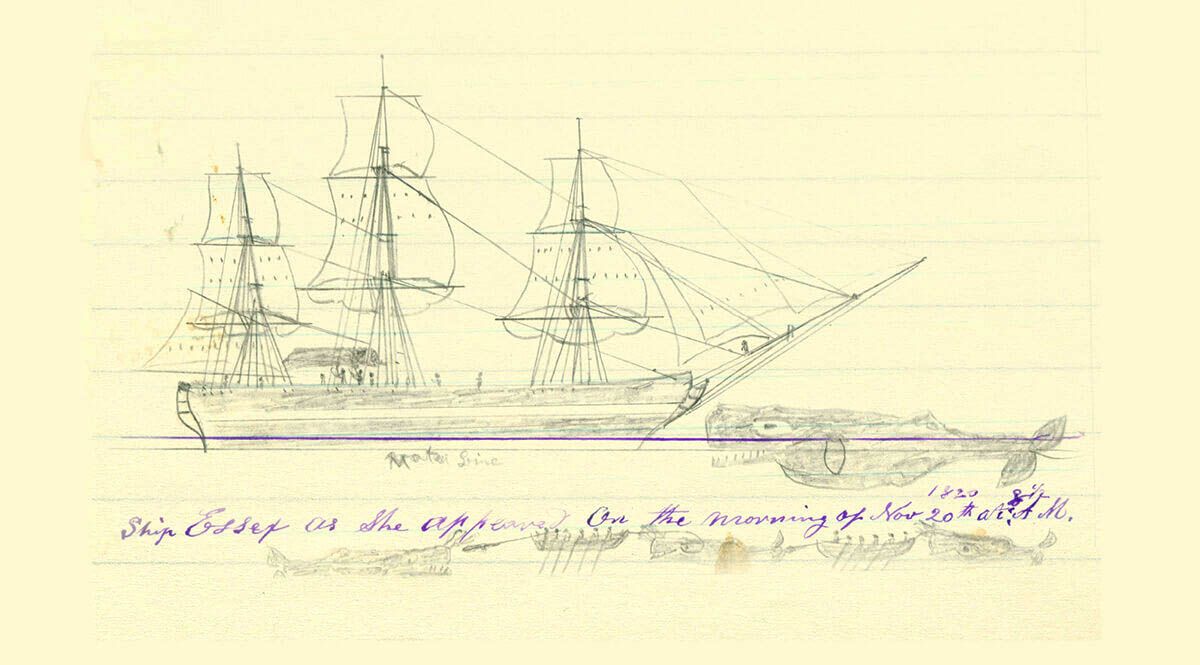 Water Line
1820
Ship Essex as She appeared On the morning of Nov 20th at 8 1/2 A M.